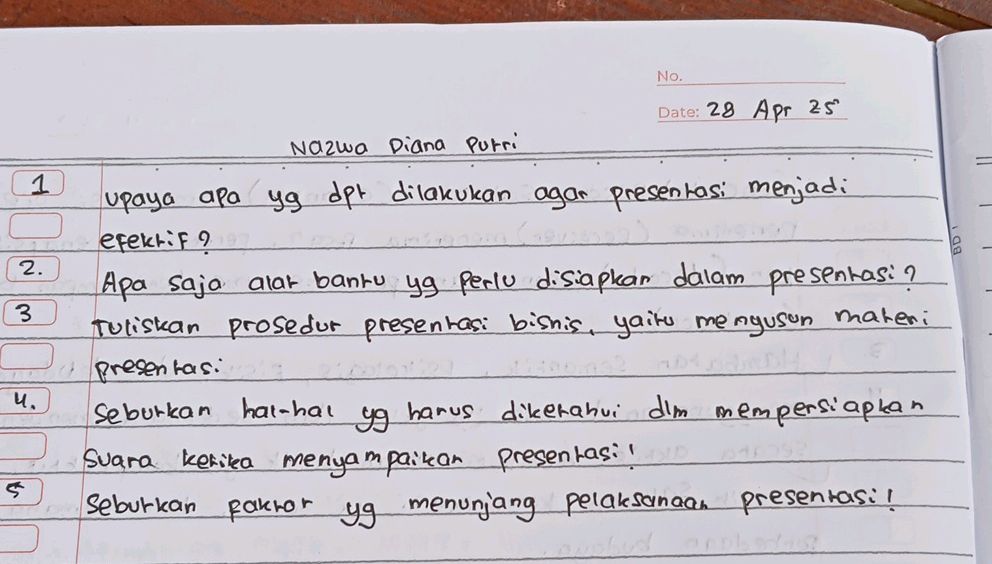 No.
Date: 28 Apr 25
Nazwa Diana Putri
1 upaya apa yg dpt dilakukan agar presentasi menjadi
efektif?
2. Apa saja alat bantu yg perlu disiapkan dalam presentasi?
3 Tuliskan prosedur presentasi bisnis, yaitu menyusun materi
presentasi
4. Seburkan hal-hal yg harus diketahui dlm mempersiapkan
suara ketika menyampaikan presentasi!
5 Seburkan faktor yg menunjang pelaksanaan presentasi!